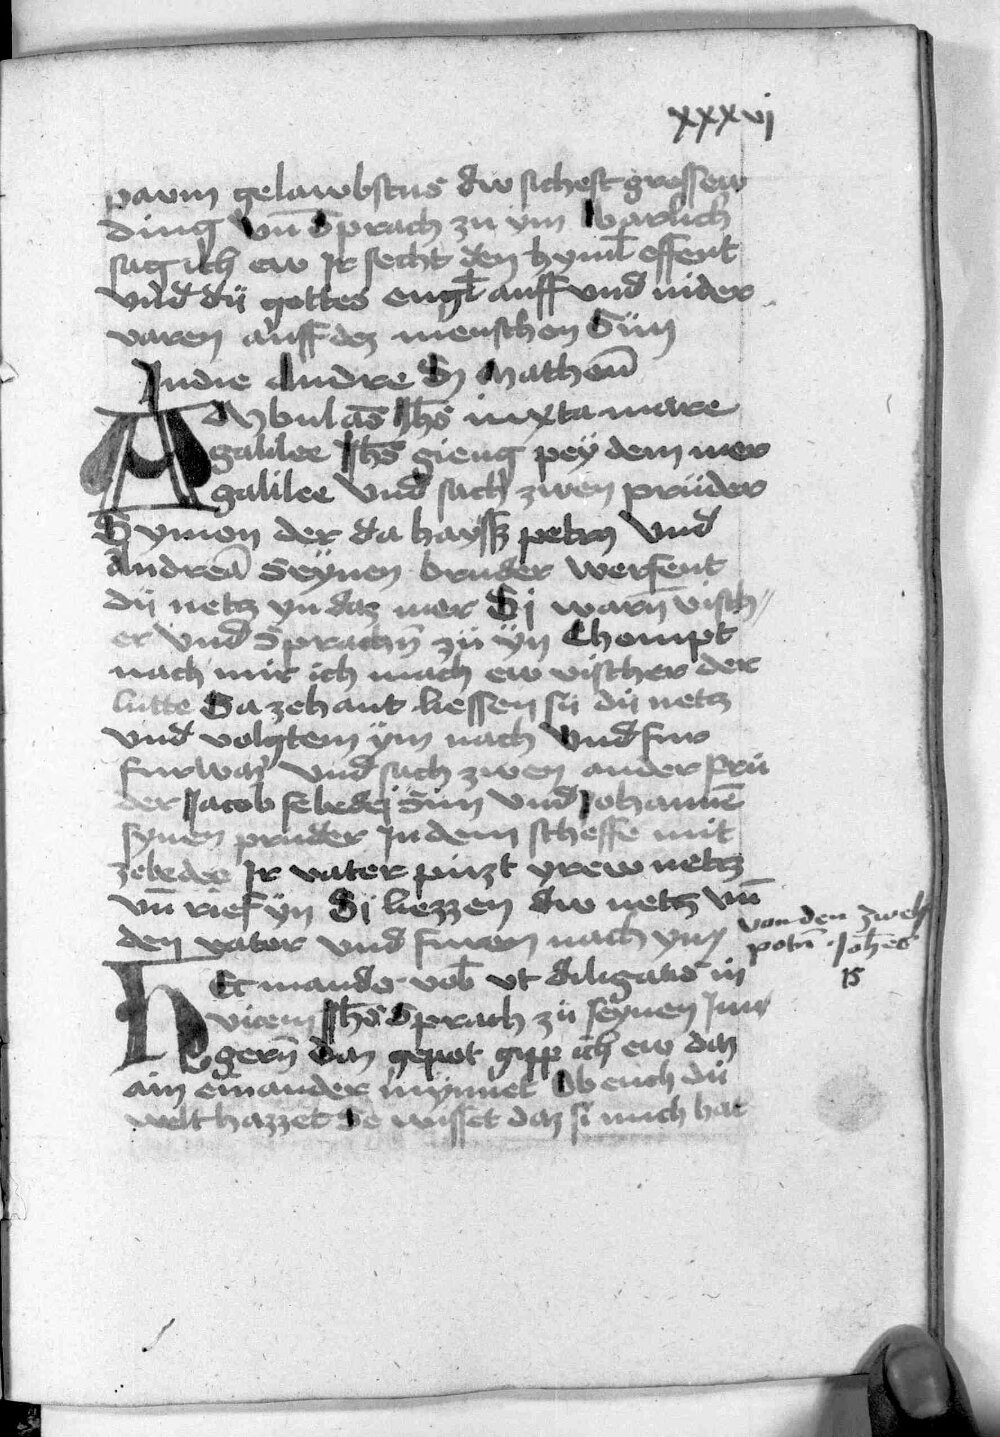 xxxvj
pavm gelawbstus dw sichest grossew
ding vn̄ Sprach zu ym Warlich
sag ich ew Ir secht den hyml̄ offent
vnd dü gottes engl̄ auff vnd nider
varen auff dez menschen Sün
Indie Andre S Matheū
AMbulās Ih̄s iuxta mare
galilee Ih̄s gieng peÿ dem mer
galilee vnd sach zwen prüder
Symon der da hayss petrus vnd
Andreā Seynen bruder werfent
dü netz yn daz mer Si warn̄ visch〃
er vnd Sprach zü ÿn Chompt
nach mir ich mach ew vischer der
lütte Sa zehant liessen sü dü netz
vnd volgtem ÿm nach vnd fur
furwas vnd sach zwen ander prü
der Jacob sebedei Sün vnd Johannē
synen pruder In dem scheffe mit
zebedeo Ir vater püzt yrew netz
vn̄ rief ÿn Si liezzen dw netz vn̄
den vater vnd furen nach ym
von den zwelf
potn̄ · Joh̄es
15
HEc mando vob̄ vt diligatis in
vicem Ih̄s Sprach zü seynen Jun
gern̄ daz gepot gipp ich ew daz
ain einander mynnet Ob euch dü
welt hazzet So wisset daz si mich hat